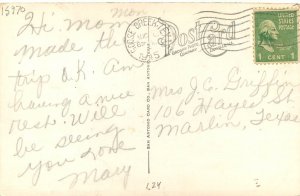 15970
Mon
Hi. mom
made the
trip O.K. Am
having a nice
rest. Will
be seeing
you soon
Mary
SAN ANTONIO CARD CO., SAN ANTONIO, TEXAS
Post Card
Mrs J.C. Griffin
106 Hayes St.
Marlin, Texas
1 CENT 1
L24